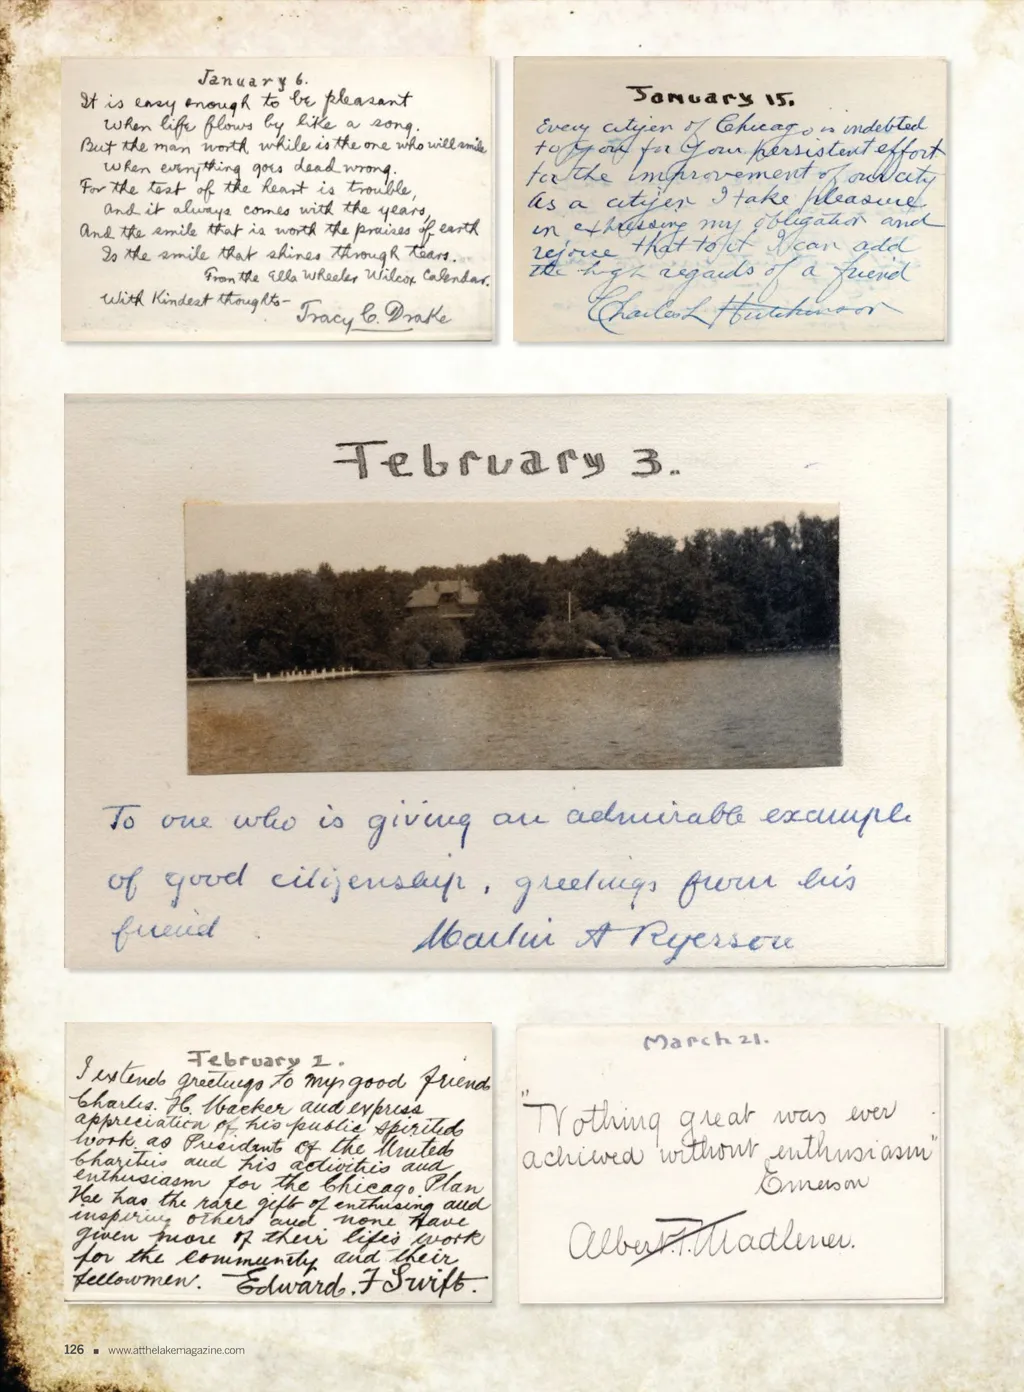 January 6.
It is easy enough to be pleasant
When life flows by like a song.
But the man worth while is the one who will smile
When everything goes dead wrong.
For the test of the heart is trouble,
And it always comes with the years,
And the smile that is worth the praises of earth
Is the smile that shines through tears.
From the Ella Wheeler Wilcox Calendar.
With Kindest thoughts—
Tracy C. Drake
January 15.
Every citizen of Chicago is indebted
to you for your persistent effort
for the improvement of our city
As a citizen I take pleasure
in expressing my obligation and
rejoice that to it I can add
the high regards of a friend
Charles L Hutchinson
February 3.
To one who is giving an admirable example
of good citizenship, greetings from his
friend Martin A Ryerson
February 1.
I extend greetings to my good friend
Charles. H. Wacker and express
appreciation of his public spirited
work as President of the United
Charities and his activities and
enthusiasm for the Chicago Plan
He has the rare gift of enthusing and
inspiring others and none have
given more of their life's work
for the community and their
fellowmen. Edward. F Swift.
March 21.
"Nothing great was ever
achieved without enthusiasm"
Emerson
Albert F. Madlener.
126 ■ www.atthelakemagazine.com